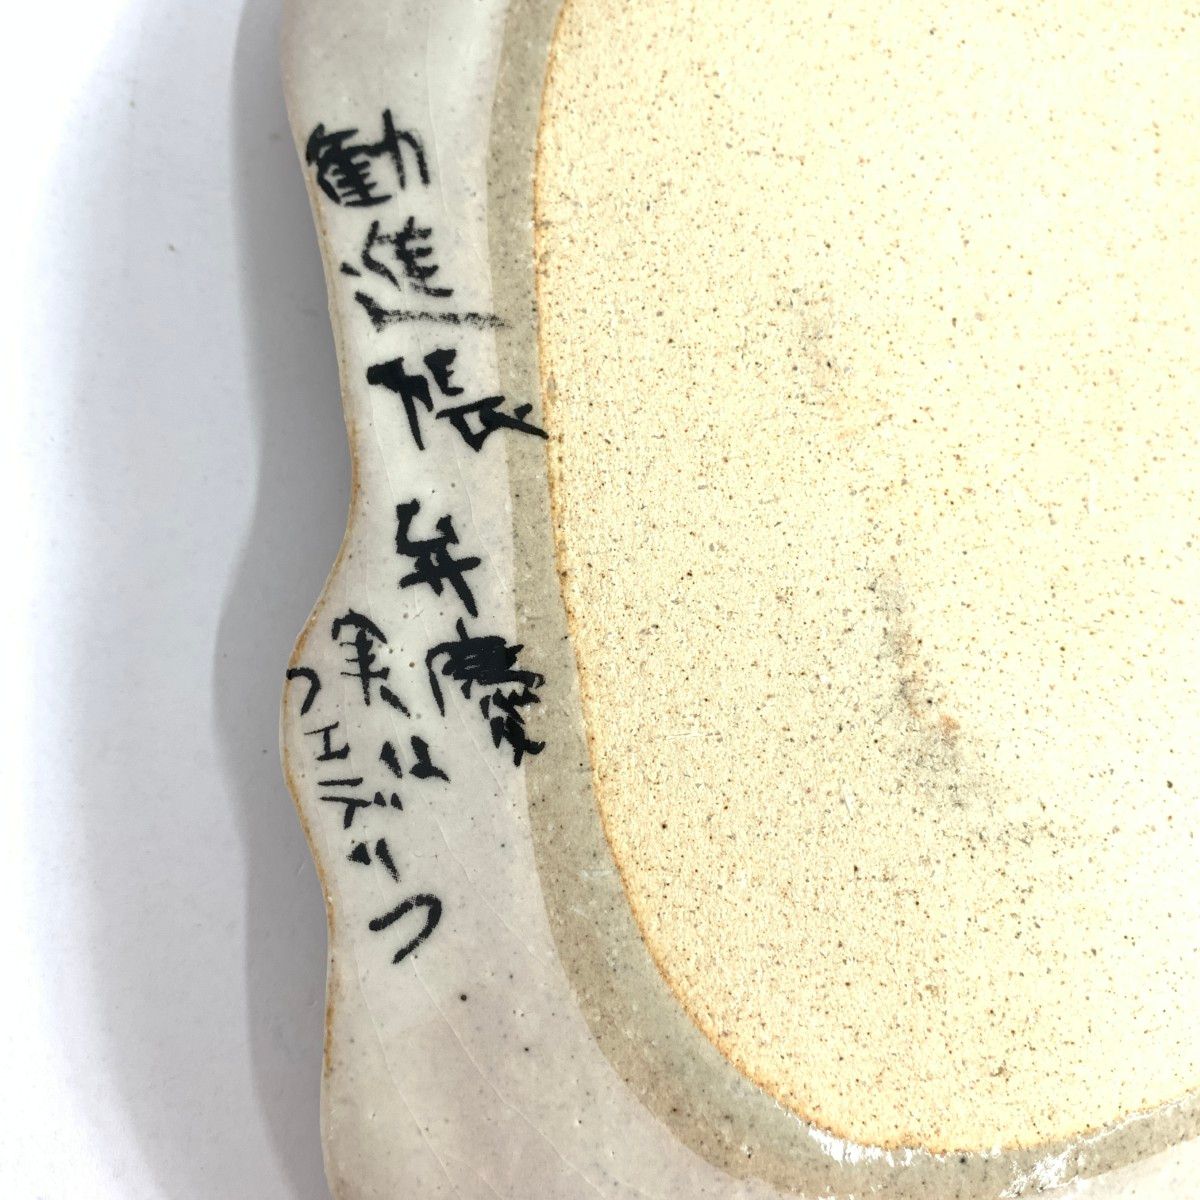 勧進帳 弁慶
実は
フェデリコ